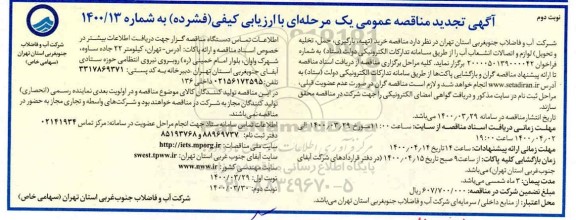 نوبت دوم
آگهی تجدید مناقصه عمومی یک مرحله‌ای با ارزیابی کیفی (فشرده) به شماره ۱۴۰۰/۱۳
شرکت آب و فاضلاب جنوبغربی استان تهران (سهامی خاص)
شرکت آب و فاضلاب جنوبغربی استان تهران در نظر دارد مناقصه خرید، تهیه، بارگیری، حمل، تخلیه
و تحویل) لوازم و اتصالات انشعاب آب را از طریق سامانه تدارکات الکترونیکی دولت (ستاد) به شماره
فراخوان ۲۰۰۰۰۵۱۳۹۰۰۰۰۴۲ برگزار نماید. کلیه مراحل برگزاری مناقصه از دریافت اسناد مناقصه
تا ارائه پیشنهاد مناقصه گران و بازگشایی پاکت‌ها از طریق سامانه تدارکات الکترونیکی دولت (ستاد) به
آدرس www.setadiran.ir انجام خواهد شد و لازم است مناقصه گران در صورت عدم عضویت قبلی،
مراحل ثبت نام در سایت مذکور و دریافت گواهی امضای الکترونیکی را جهت شرکت در مناقصه محقق
سازند.
تاریخ انتشار مناقصه در سامانه ۱۴۰۰/۰۳/۲۹ می‌باشد.
مهلت زمانی دریافت اسناد مناقصه از سایت:
مهلت زمانی ارائه پیشنهادات: ساعت ۱۴ تاریخ ۱۴۰۰/۰۴/۱۴
زمان بازگشایی کلیه پاکات: از ساعت ۹ صبح تاریخ ۱۴۰۰/۰۴/۱۵ در دفتر قراردادهای شرکت آبفای
جنوب غربی استان تهران
مدت پیمان: ۳ ماه شمسی می‌باشد.
مبلغ تضمین شرکت در مناقصه: ۶۰۷/۷۰۰/۰۰۰ ریال
محل اعتبار: از منابع داخلی / سرمایه‌ای شرکت آب و فاضلاب جنوب غربی استان تهران
اطلاعات تماس دستگاه مناقصه گزار جهت دریافت اطلاعات بیشتر در
خصوص اسناد مناقصه و ارائه پاکات: آدرس: تهران، کیلومتر ۲۲ جاده ساوه،
شهرک واوان، بلوار امام خمینی (ره) روبروی نیروی انتظامی حوزه ستادی
آبفای جنوبغربی استان تهران دبیرخانه کد پستی: ۳۳۱۷۸۶۹۳۷۱
تلفن: ۰۲۱۵۶۱۷۲۵۹۵ داخلی ۱۳۶
در این مناقصه تولید کنندگان کالای موضوع مناقصه و در اولویت بعدی نماینده رسمی (انحصاری)
تولید کنندگان مجاز به شرکت در مناقصه خواهند بود و شرکت‌های واسطه و تجاری مجاز به حضور در
مناقصه نمی‌باشند.
اطلاعات تماس سامانه ستاد جهت انجام مراحل عضویت در سامانه: مرکز تماس ۰۲۱۴۱۹۳۴
دفتر ثبت نام: ۸۸۹۶۹۷۳۷ و ۸۵۱۹۳۷۶۸
سایت ملی مناقصات: http://iets.mporg.ir
سایت آبفای جنوب غربی استان تهران: swest.tpww.ir
سایت مهندسی کشور: www.nww.ir
نوبت اول: ۱۴۰۰/۰۳/۲۹
نوبت دوم: ۱۴۰۰/۰۳/۳۰
شرکت آب و فاضلاب جنوب غربی استان تهران (سهامی خاص)